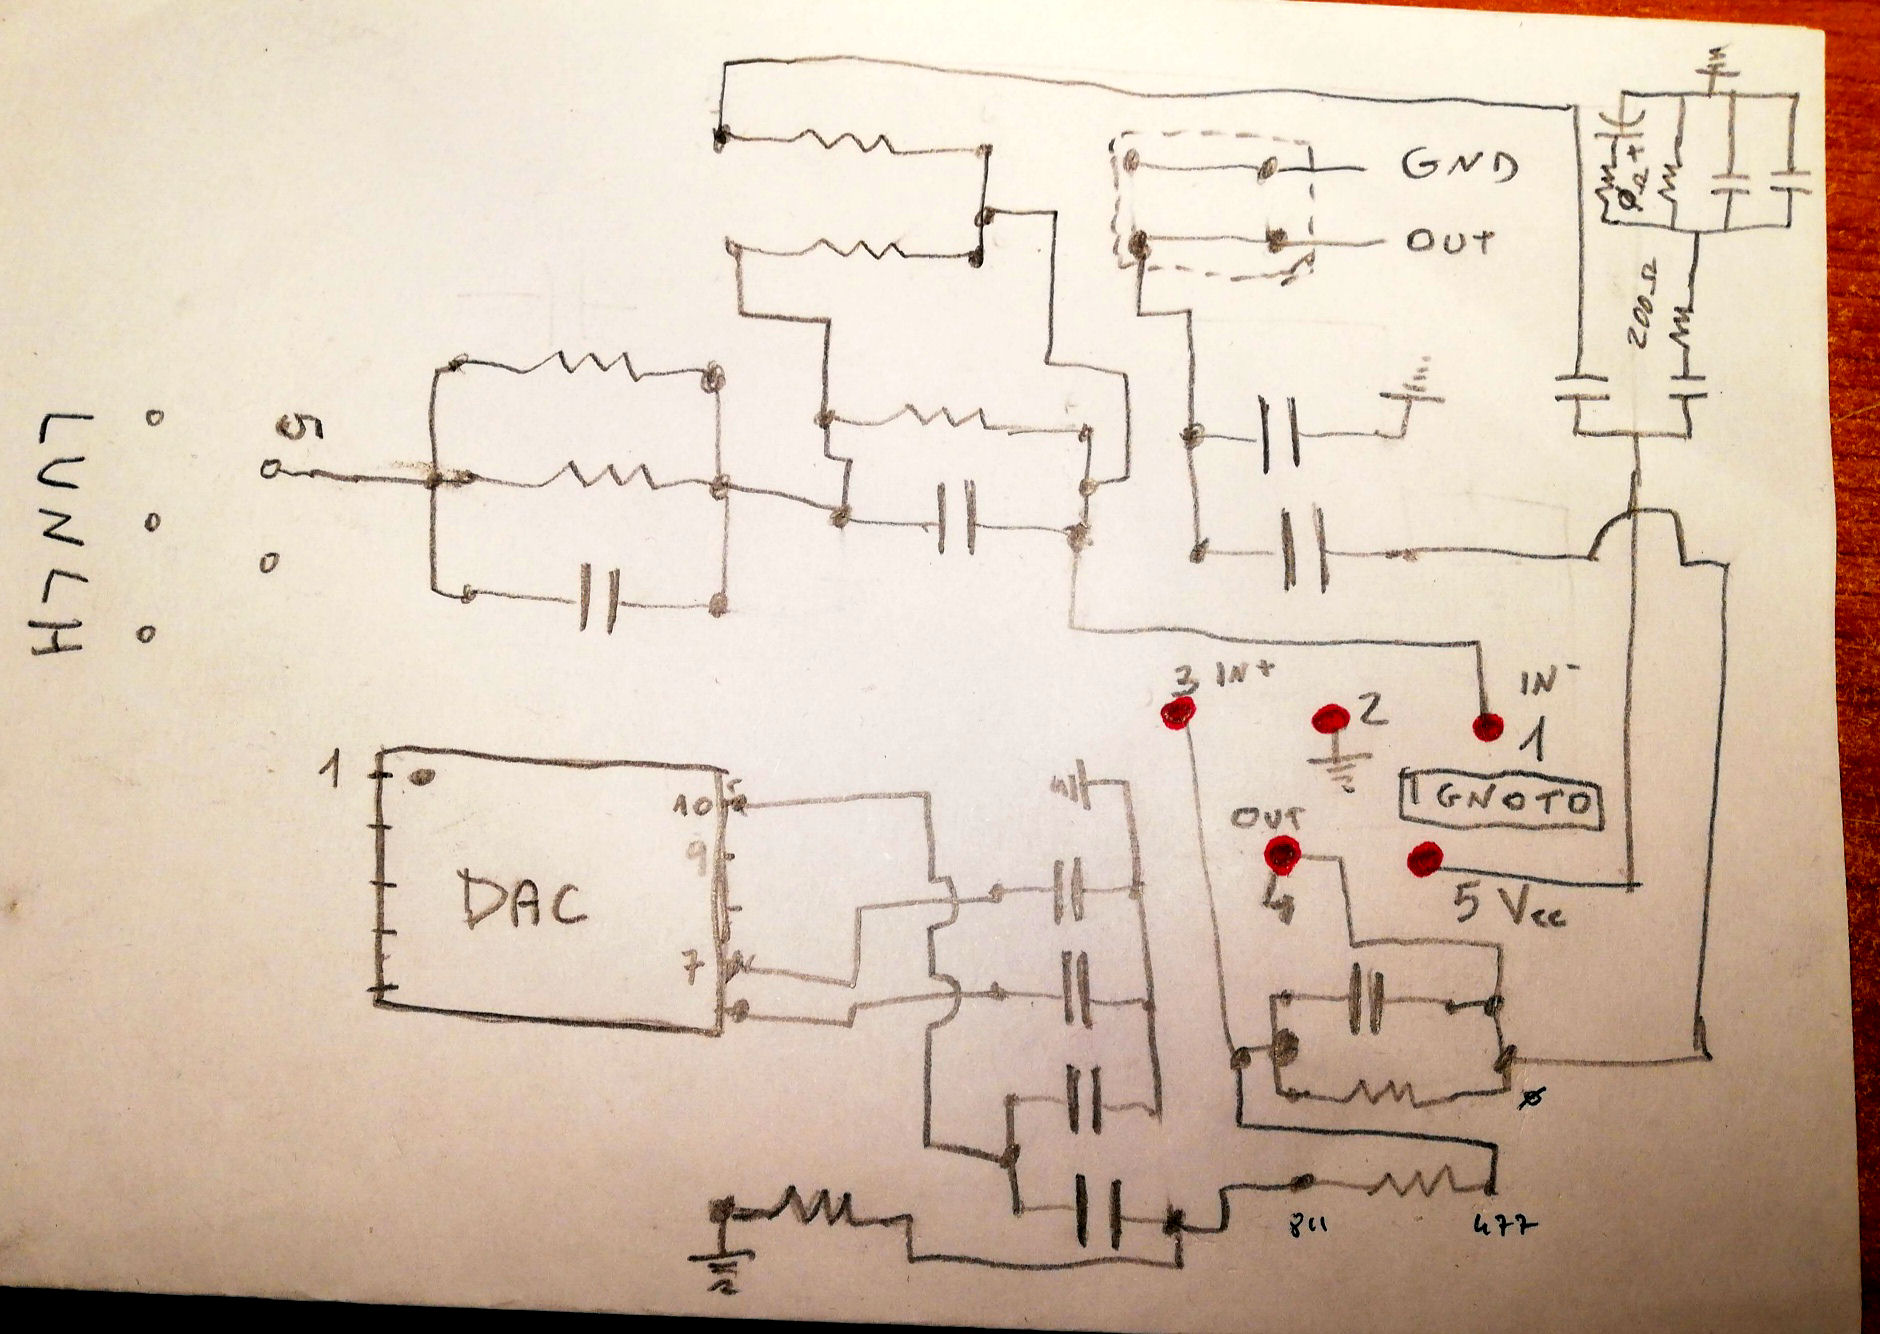 GND
OUT
ϕΩ+
200Ω
5
3 IN+
2
IN-
1
IGNOTO
OUT
4
5 Vcc
1
DAC
10
9
7
ϕ
811
477